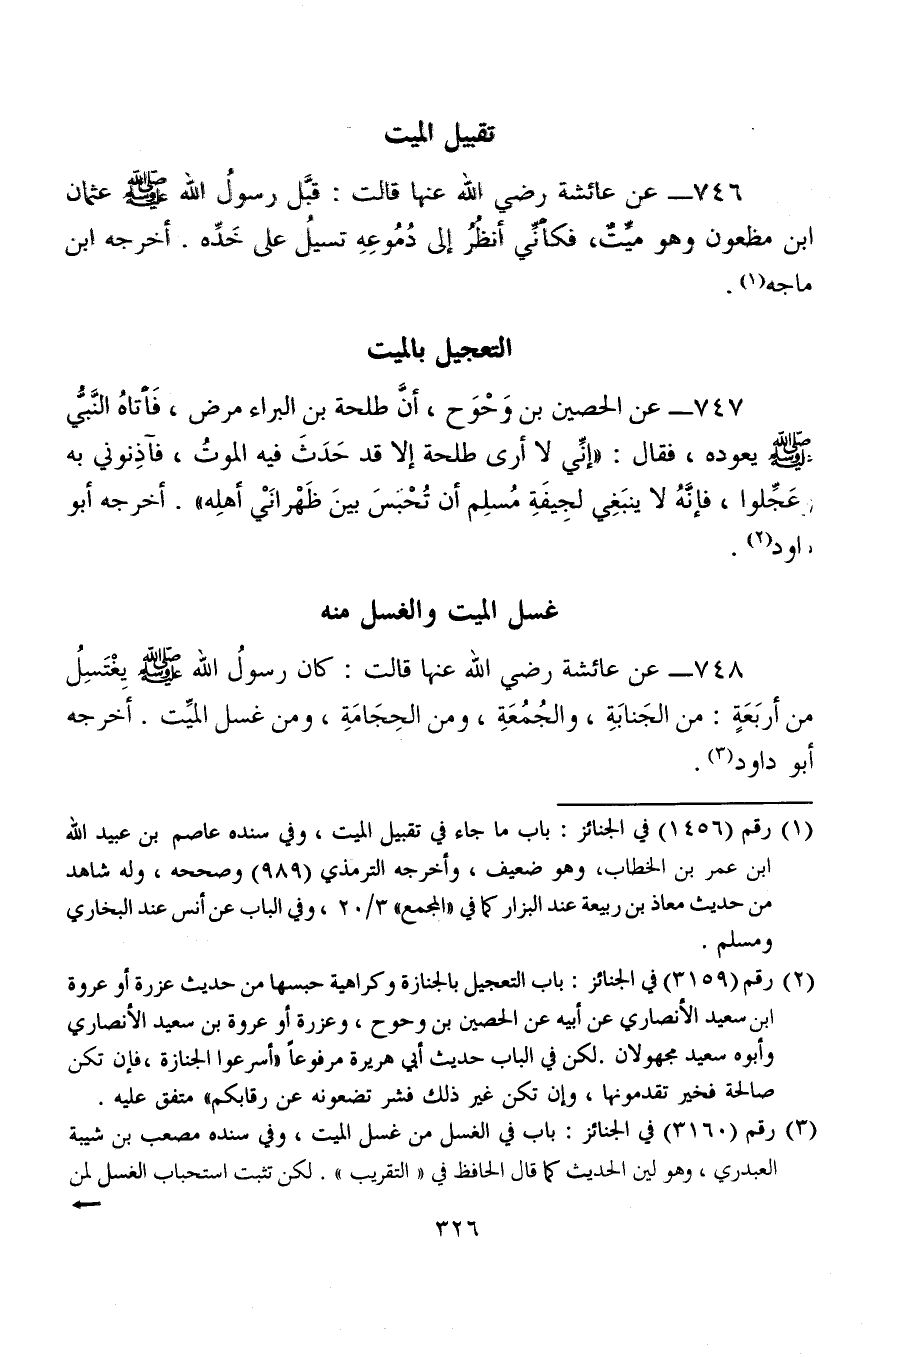 تقبيل الميت
٧٤٦ــ عن عائشة رضي الله عنها قالت : قبَّل رسولُ الله ﷺ عثمان
ابن مظعون وهو ميِّتٌ، فكأنِّي أنظُرُ إلى دُمُوعِهِ تسيلُ على خَدِّه . أخرجه ابن
ماجه(١) .
التعجيل بالميت
٧٤٧ــ عن الحصين بن وَحْوَح ، أنَّ طلحة بن البراء مرض ، فَأتاهُ النَّبيُّ
ﷺ يعوده ، فقال : «إنِّي لا أرى طلحة إلا قد حَدَثَ فيه الموتُ ، فآذِنوني به
وعَجِّلوا ، فإنَّهُ لا ينبَغِي لجِيفَةِ مُسلِم أن تُحْبَسَ بينَ ظَهْرانَيْ أهلِه» . أخرجه أبو
داود(٢) .
غسل الميت والغسل منه
٧٤٨ــ عن عائشة رضي الله عنها قالت : كان رسولُ الله ﷺ يغْتَسِلُ
من أربَعَةٍ : من الجَنابَةِ ، والجُمُعَةِ ، ومن الحِجَامَةِ ، ومن غسل الميِّت . أخرجه
أبو داود(٣) .
(١) رقم (١٤٥٦) في الجنائز : باب ما جاء في تقبيل الميت ، وفي سنده عاصم بن عبيد الله
ابن عمر بن الخطاب، وهو ضعيف ، وأخرجه الترمذي (٩٨٩) وصححه ، وله شاهد
من حديث معاذ بن ربيعة عند البزار كما في «المجمع» ٢٠/٣ ، وفي الباب عن أنس عند البخاري
ومسلم .
(٢) رقم (٣١٥٩) في الجنائز : باب التعجيل بالجنازة وكراهية حبسها من حديث عزرة أو عروة
ابن سعيد الأنصاري عن أبيه عن الحصين بن وحوح ، وعزرة أو عروة بن سعيد الأنصاري
وأبوه سعيد مجهولان .لكن في الباب حديث أبي هريرة مرفوعاً «أسرعوا الجنازة ،فإن تكن
صالحة فخير تقدمونها ، وإن تكن غير ذلك فشر تضعونه عن رقابكم» متفق عليه .
(٣) رقم (٣١٦٠) في الجنائز : باب في الغسل من غسل الميت ، وفي سنده مصعب بن شيبة
العبدري ، وهو لين الحديث كما قال الحافظ في « التقريب » . لكن تثبت استحباب الغسل لمن
←
٣٢٦